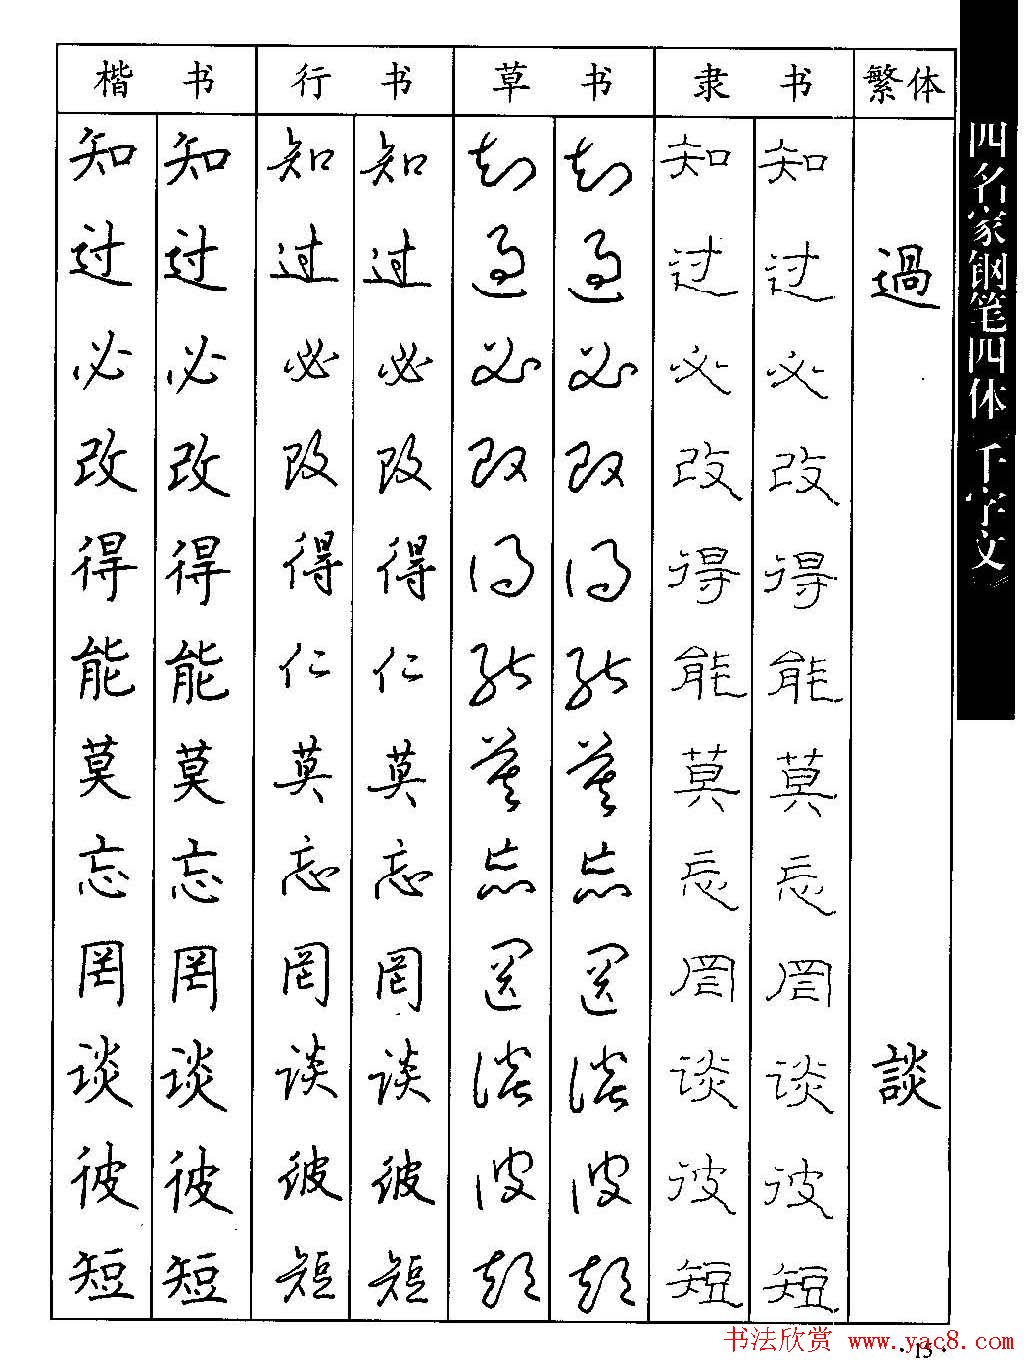 楷书 行书 草书 隶书 繁体
知 知 知 知 知 知 知 知
过 过 过 过 过 过 过 过 過
必 必 必 必 必 必 必 必
改 改 改 改 改 改 改 改
得 得 得 得 得 得 得 得
能 能 仁 仁 能 能 能 能
莫 莫 莫 莫 莫 莫 莫 莫
忘 忘 忘 忘 忘 忘 忘 忘
罔 罔 罔 罔 罔 罔 罔 罔
谈 谈 谈 谈 谈 谈 谈 谈 談
彼 彼 彼 彼 彼 彼 彼 彼
短 短 短 短 短 短 短 短
四名家钢笔四体 千字文
书法欣赏 www.yac8.com
·15·